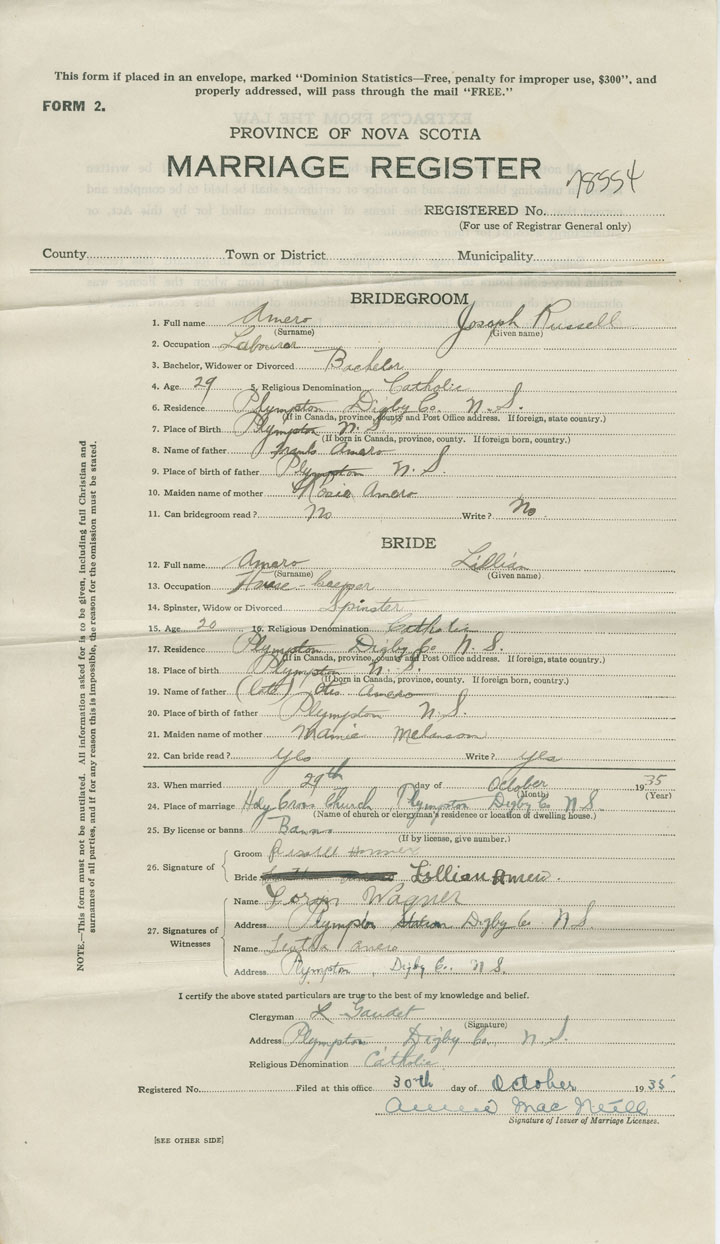 This form if placed in an envelope, marked "Dominion Statistics—Free, penalty for improper use, $300", and
properly addressed, will pass through the mail "FREE."
FORM 2.
PROVINCE OF NOVA SCOTIA
MARRIAGE REGISTER
78554
REGISTERED No.
(For use of Registrar General only)
County Town or District Municipality
BRIDEGROOM
1. Full name Amero Joseph Russell
(Surname) (Given name)
2. Occupation Labourer
3. Bachelor, Widower or Divorced Bachelor
4. Age 29 5. Religious Denomination Catholic
6. Residence Plympton Digby Co. N. S.
(If in Canada, province, county and Post Office address. If foreign, state country.)
7. Place of Birth Plympton N. S.
(If born in Canada, province, county. If foreign born, country.)
8. Name of father Frank Amero
9. Place of birth of father Plympton N. S.
10. Maiden name of mother Rosie Amero
11. Can bridegroom read? No Write? No
BRIDE
12. Full name Amero Lillian
(Surname) (Given name)
13. Occupation House-keeper
14. Spinster, Widow or Divorced Spinster
15. Age 20 16. Religious Denomination Catholic
17. Residence Plympton Digby Co N. S.
(If in Canada, province, county and Post Office address. If foreign, state country.)
18. Place of birth Plympton N. S.
(If born in Canada, province, county. If foreign born, country.)
19. Name of father Amero
20. Place of birth of father Plympton N. S.
21. Maiden name of mother Mamie Melanson
22. Can bride read? Yes Write? Yes
23. When married 29th day of October 1935
(Month) (Year)
24. Place of marriage Holy Cross Church Plympton Digby Co N. S.
(Name of church or clergyman's residence or location of dwelling house.)
25. By license or banns Banns
(If by license, give number.)
26. Signature of
Groom
Bride Lillian
27. Signatures of Witnesses
Name Wagner
Address Plympton Station Digby Co N S
Name Amero
Address Plympton, Digby Co. N S.
I certify the above stated particulars are true to the best of my knowledge and belief.
Clergyman L Gaudet
(Signature)
Address Plympton Digby Co. N. S.
Religious Denomination Catholic
Registered No. Filed at this office 30th day of October 1935
Annie MacNeill
Signature of Issuer of Marriage Licenses.
[SEE OTHER SIDE]
NOTE.—This form must not be mutilated. All information asked for is to be given, including full Christian and
surnames of all parties, and if for any reason this is impossible, the reason for the omission must be stated.